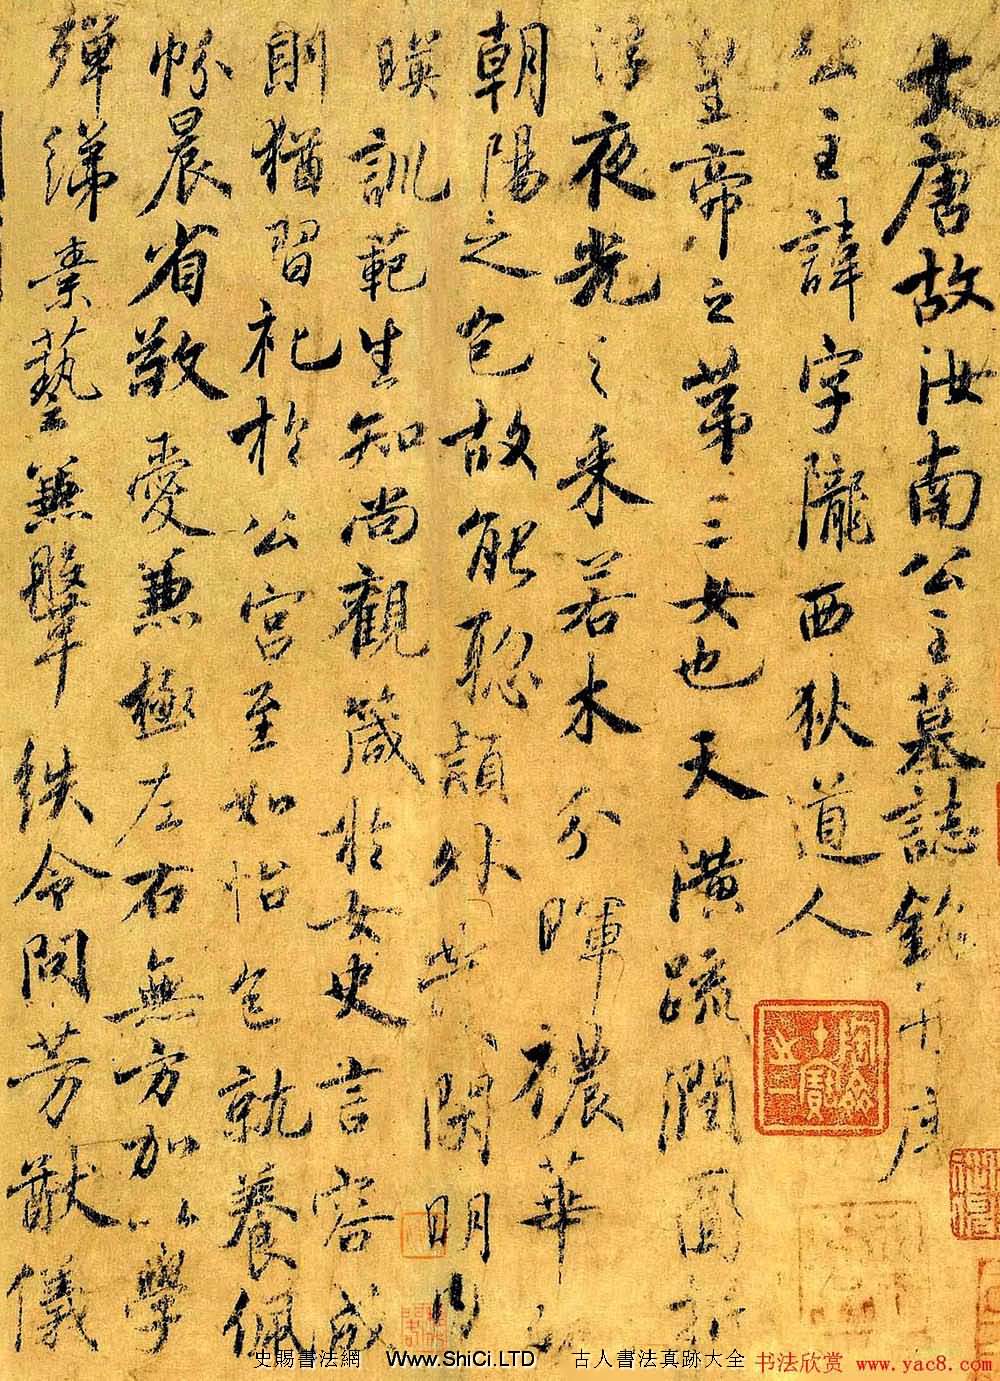 大唐故汝南公主墓誌銘并序
公主諱字隴西狄道人
皇帝之第三女也天潢疏潤圓折
浮夜光之采若木分暉穠華
朝陽之色故能聰穎外發閑明內
暎訓範生知尚觀箴於女史言容成
則猶習礼於公宮至如怡色就養佩
帉晨省敬愛兼極左右無方加以學
殫綈素藝兼鞶紩令問芳猷儀
史賜書法網 Www.ShiCi.LTD 古人書法真跡大全 书法欣赏 www.yac8.com